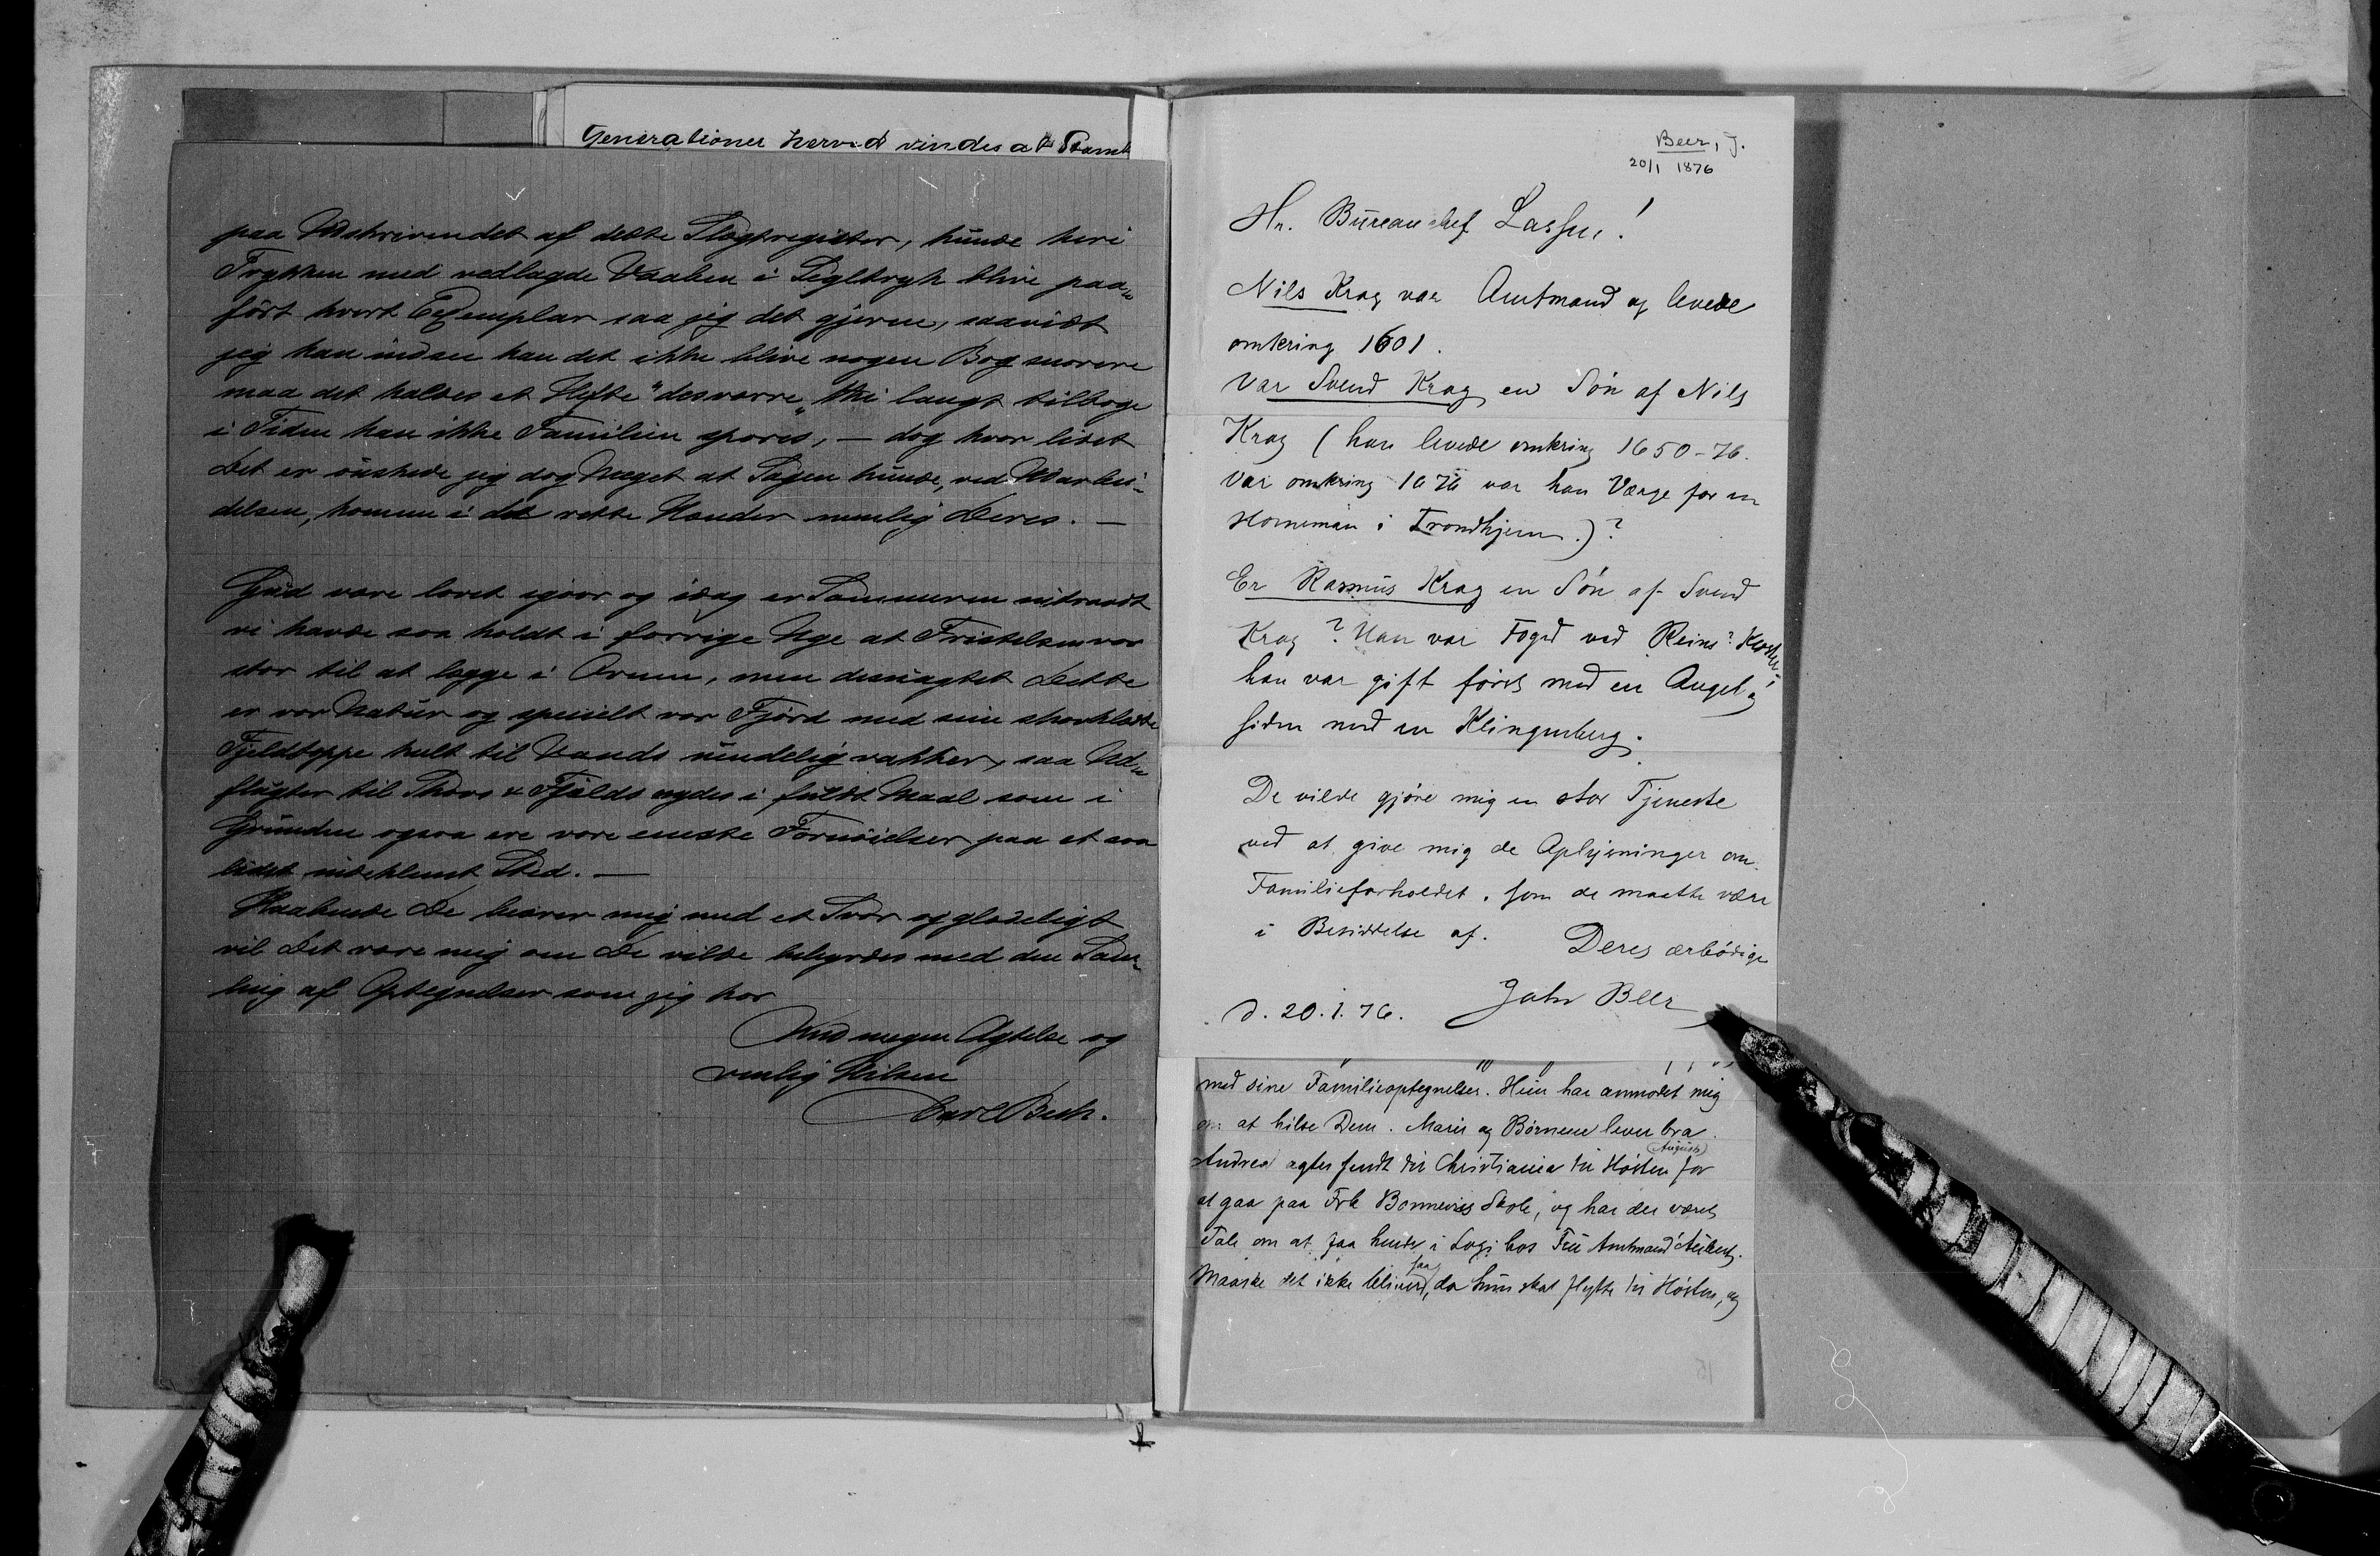 Generationer herved vindes at Stamt
paa Udskrivendet af dette Slægtregister, kunde heri
Trykken med vedlagde Vaaben i Segltryk blive paa„
ført hvert Exemplar saa jeg det gjerne, saavidt
jeg kan indsee kan det ikke blive nogen Bog snarere
maa det kaldes et Hefte "desværre„ thi langt tilbage
i Tiden kan ikke Familien spores, — dog hvor lidet
Det er ønskede jeg dog Meget at Sagen kunde, ved Udarbei-
delsen, komme i det rette Hænder nemlig Deres. —
Gud være lovet igaar og idag er Sommeren indtraadt
vi havde saa koldt i forrige Uge at Fristelsen var
stor til at lægge i Ovnen, men desuagtet Dette
er vor Natur og specielt vor Fjord med sine
Fjeldtoppe helt til Vands uendelig vakker, saa Ud„
flugter til Skovs & Fjelds nydes i fuldt Maal som i
Grunden ogsaa ere vore eneste Fornøielser paa et saa
lidet indeklemt Sted. —
Haabende De beærer mig med et Svar og glædeligt
vil Det være mig om De vilde bebyrdes med den Sam„
ling af Optegnelser som jeg har
Med megen Agtelse og
venlig Hilsen
Carl Bech.
Beer, J.
20/1 1876
Hr. Bureauchef Lassen!
Nils Krag var Amtmand og levede
omkring 1601.
Var Svend Krag en Søn af Nils
Krag (han levede omkring 1650-76.
Var omkring 1676 var han Værge for en
Horneman i Trondhjem.)?
Er Rasmus Krag en Søn af Svend
Krag? Han var Foged ved Reins? Kloster-
han var gift først med en Angel og
siden med en Klingenberg.
De vilde gjøre mig en stor Tjeneste
ved at give mig de Oplysninger om
Familieforholdet. som de maatte være
i Besiddelse af. Deres ærbødige
d. 20.1.76. John Beer
med sine Familieoptegnelser. Hun har anmodet mig
om at hilse Dem. Marie og Børnene lever bra.
(August)
Andrea agtes sendt til Christiania til Høsten for
at gaa paa Frk Bonnevies Skole, og har der været
Tale om at faa hende i Logi hos Fru Amtmand
saa
Maaske det ikke bliver, da hun skal flytte til Høsten, og
15